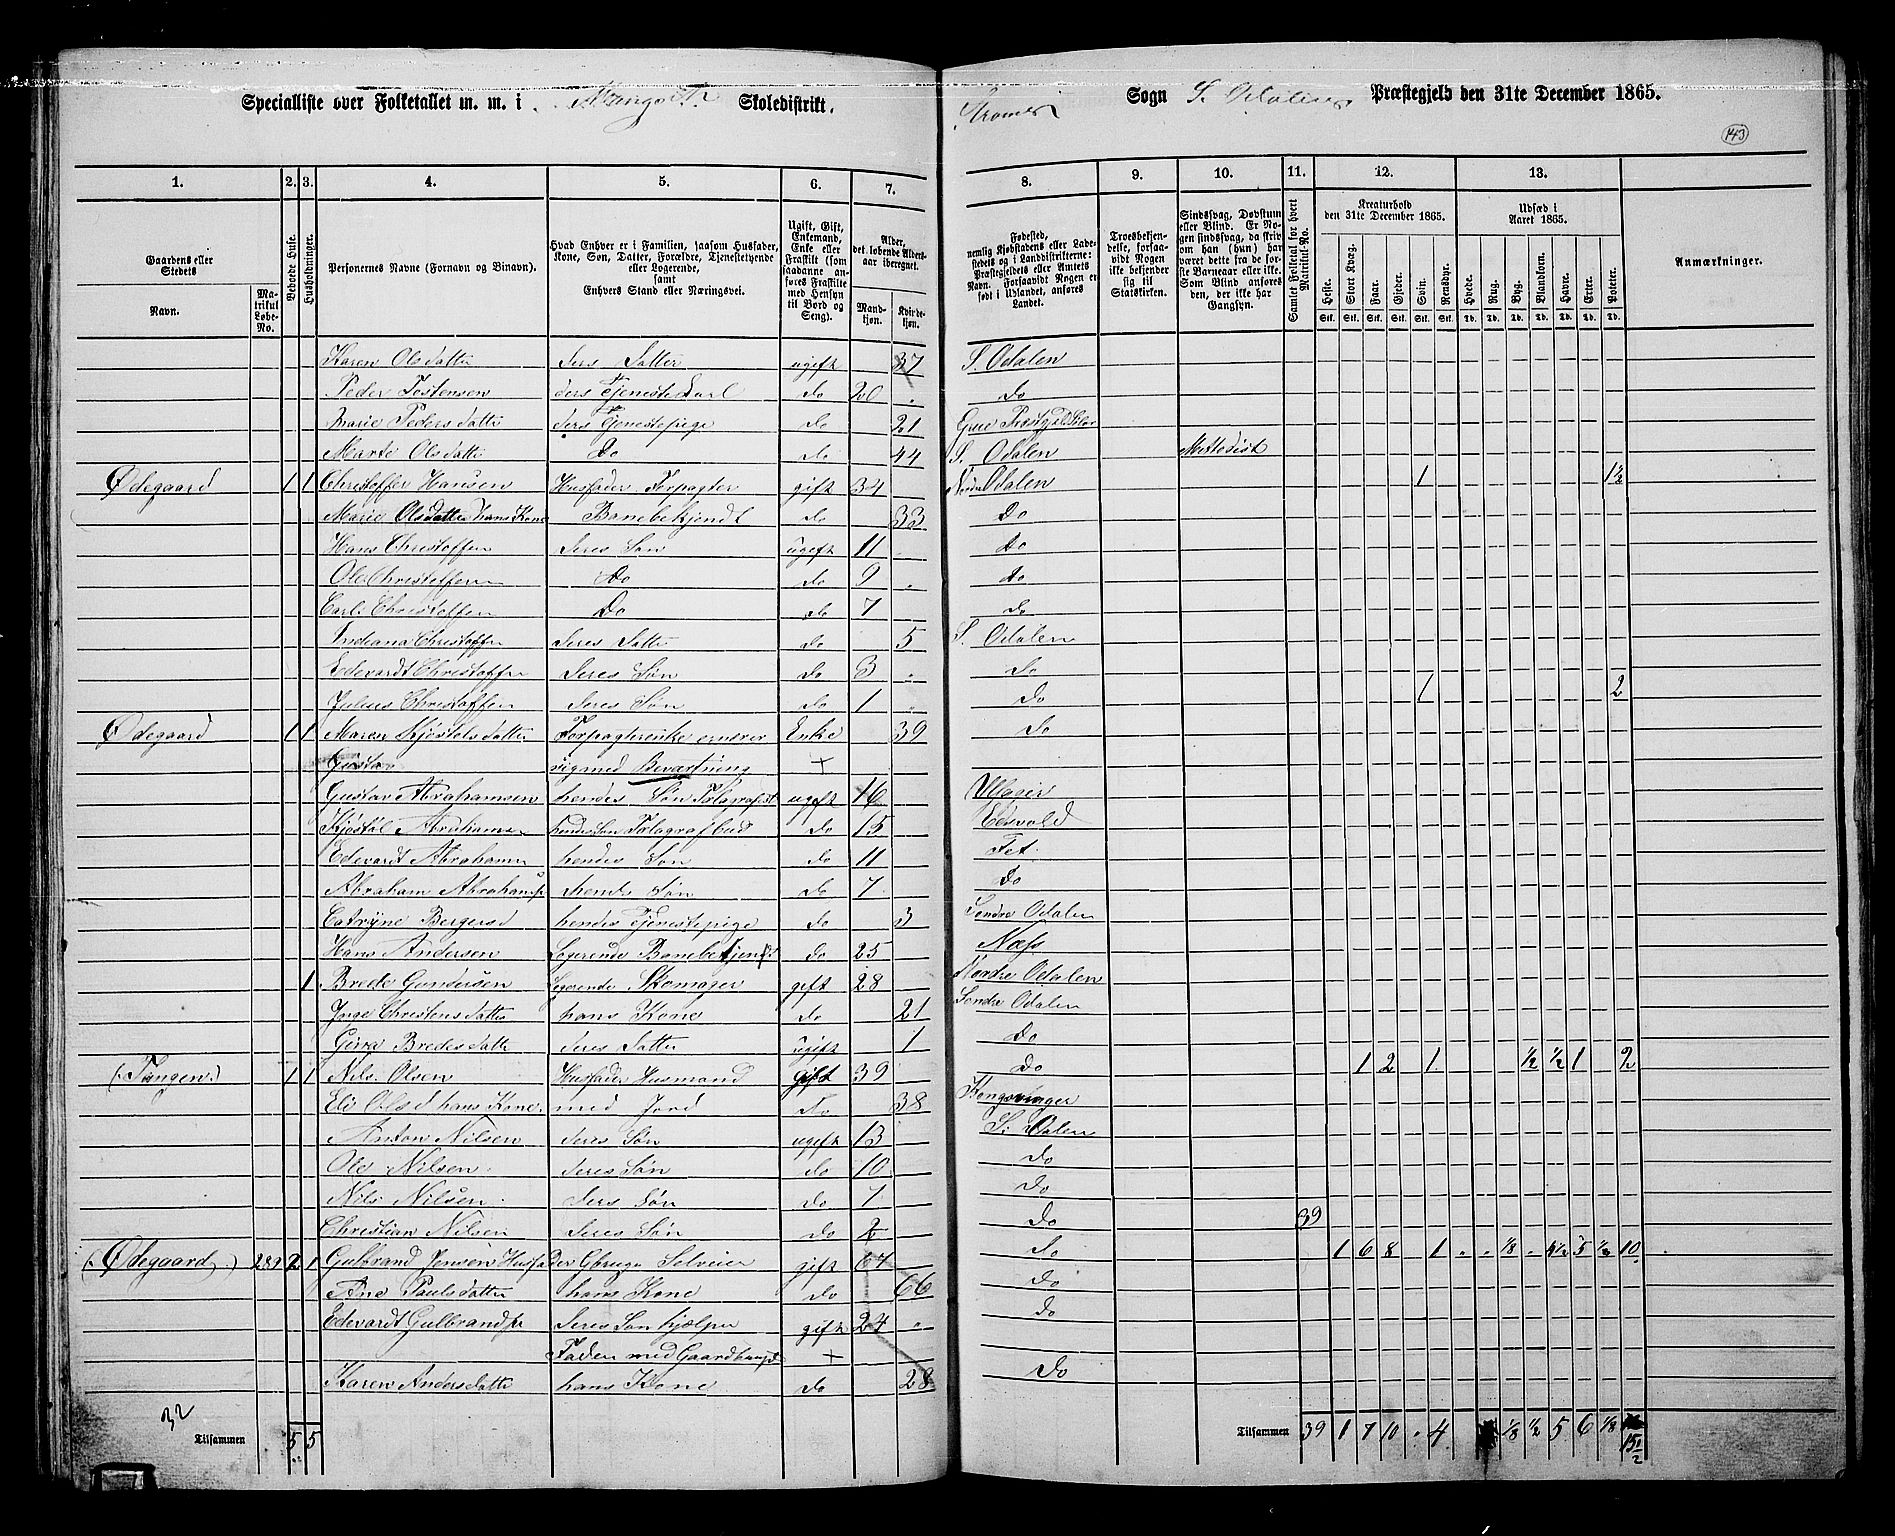 Specialliste over Folketallet m. m. i Skoledistrikt.
Sogn S. Odalen Præstegjeld den 31te December 1865.
143
1. 2. 3. 4. 5. 6. 7. 8. 9. 10. 11. 12. 13.
Gaardens eller Stedets
Navn.
Matrikul Løbe-No.
Beboede Huse.
Husholdninger.
Personernes Navne (Fornavn og Binavn).
Hvad Enhver er i Familien, saasom Husfader, Kone, Søn, Datter, Forældre, Tjenestetyende eller Logerende, samt Enhvers Stand eller Næringsvei.
Ugift, Gift, Enkemand, Enke eller Fraskilt (som saadanne anføres Fraskilte med Hensyn til Bord og Seng).
Alder, det løbende Aldersaar iberegnet.
Mandkjøn. Kvindekjøn.
Fødested, nemlig Kjøbstadens eller Ladestedets og i Landdistrikterne: Præstegjeldets eller Amtets Navn. Forsaavidt Nogen er født i Udlandet, anføres Landet.
Troesbekjendelse, forsaavidt Nogen ikke bekjender sig til Statskirken.
Sindssvag, Døvstum eller Blind. Er Nogen sindssvag, da skrives om han (hun) har været dette fra de første Barneaar eller ikke. Som Blind anføres den, der ikke har Gangsyn.
Samlet Folketal for hvert Matrikul-No.
Kreaturhold den 31te December 1865.
Heste. Stort Kvæg. Faar. Gjeder. Svin. Rensdyr.
Udsæd i Aaret 1865.
Hvede. Rug. Byg. Blandkorn. Havre. Erter. Poteter.
Anmærkninger.
Karen Olsdatter deres Datter ugift 37 S. Odalen
Peder Tostensen ders Tjenestekarl do 20 do
Marie Pedersdatter ders Tjenestepige do 21 Grue
Marte Olsdatter Do do 44 S. Odalen Mettodist
Ødegaard 1 1 Christoffer Hansen Husfader Forpagter gift 34 Nordre Odalen 1 1½
Marie Olsdatter hans Kone Banebetjendt do 33 Do
Hans Christoffersen deres Søn ugift 11 do
Ole Christoffersen Do do 9 do
Carl Christoffersen Do do 7 do
Indiana Christoffersen deres Datter do 5 S. Odalen
Edevardt Christoffersen deres Søn do 3 do
Julius Christoffersen deres Søn do 1 do 1 2
Ødegaard 1 1 Maren Kjøstelsdatter Forpagterenke ernærer Enke 39 do
Gustav sig med Bevartning +
Gustav Abrahamsen hendes Søn Telegrafist ugift 16 Ullager
Kjøstøl Abrahamsen hendes Søn Telegrafbud do 15 Edsvold
Edevardt Abrahamsen hendes Søn do 11 Fet
Abraham Abrahamsen hendes Søn do 7 Do
Catrine Bergersd hendes Tjenestepige do 3 Søndre Odalen
Hans Andersen Logerende Banebetjent do 25 Næss
1 Brede Gundersen Logerende Skomager gift 28 Nordre Odalen
Christensdatter hans Kone do 21 Søndre Odalen
Bredesdatter deres Datter ugift 1 Do
(Tangen) 1 1 Nils Olsen Husfader Husmand gift 39 Do 1 2 1 ½ ½ 1 2
Eli Olsd hans Kone. med Jord Do 38 Kongsvinger
Anton Nilsen deres Søn ugift 13 S: Odalen
Ole Nilsen deres Søn do 10 do
Nils Nilsen ders Søn do 7 do
Christian Nilsen deres Søn do 2 do 39
(Ødegaard) 289 2 1 Gulbrand Jensen Husfader Gbruger Selveier gift 67 do 1 6 8 1 ⅛ 4½ 5 ⅛ 10
Ane Paulsdatter hans Kone do 66 do
Edevardt Gulbrands deres Søn hjælper gift 24 do
Faderen med Gaardsbruget +
Karen Andersdatter hans Kone do 28 do
32
Tilsammen 5 5
Tilsammen 39 1 7 10 4 ⅛ ½ 5 6 ⅛ 15½